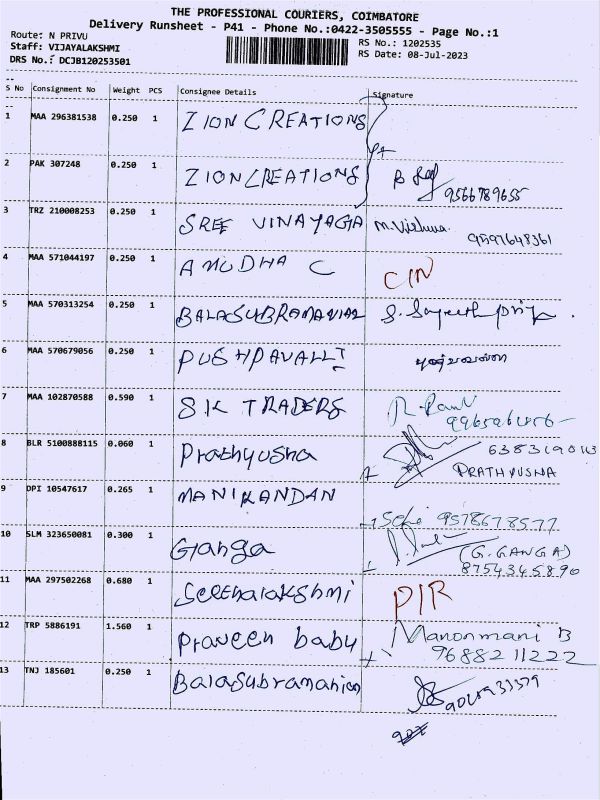 THE PROFESSIONAL COURIERS, COIMBATORE
Delivery Runsheet - P41 - Phone No.:0422-3505555 - Page No.:1
Route: N PRIVU
Staff: VIJAYALAKSHMI
DRS No.: DCJB120253501
RS No.: 1202535
RS Date: 08-Jul-2023
S No Consignment No Weight PCS Consignee Details Signature
1 MAA 296381538 0.250 1 ZION CREATIONS
2 PAK 307248 0.250 1 ZION CREATIONS 9566789655
3 TRZ 210008253 0.250 1 SREE VINAYAGA M. Vishwa 9597648361
4 MAA 571044197 0.250 1 ANUDHA C CIN
5 MAA 570313254 0.250 1 BALASUBRAMANIAN
6 MAA 570679056 0.250 1 PUSHPAVALLI புஷ்பவல்லி
7 MAA 102870588 0.590 1 SK TRADERS
8 BLR 5100888115 0.060 1 Prathyusha PRATHYUSHA
9 DPI 10547617 0.265 1 MANIKANDAN 9578678577
10 SLM 323650081 0.300 1 Ganga (G. GANGA)
8754345890
11 MAA 297502268 0.680 1 Seethalakshmi DIR
12 TRP 5886191 1.560 1 Praveen babu Manonmani B
9688211222
13 TNJ 185601 0.250 1 Balasubramanian